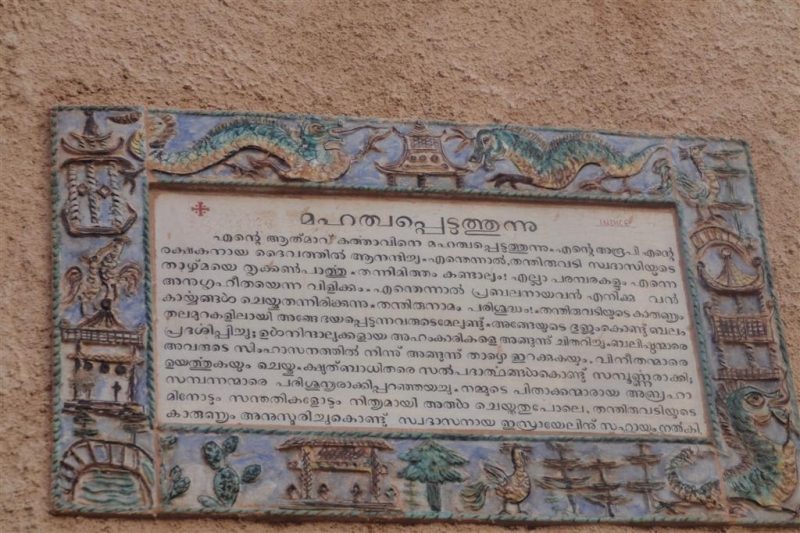 മഹത്വപ്പെടുത്തുന്നു
INDICE
എന്റെ ആത്മാവ് കത്താവിനെ മഹത്വപ്പെടുത്തുന്നു. എന്റെ അരൂപി എന്റെ
രക്ഷകനായ ദൈവത്തിൽ ആനന്ദിച്ചു. എന്തെന്നാൽ, തന്തിരുവടി സ്വദാസിയുടെ
താഴ്മയെ തൃക്കൺപാത്തു. തന്നിമിത്തം കണ്ടാലും! എല്ലാ പരമ്പരകളും എന്നെ
അനുഗൃഹീതയെന്നു വിളിക്കും. എന്തെന്നാൽ പ്രബലനായവൻ എനിക്കു വൻ
കാര്യങ്ങൾ ചെയ്തുതന്നിരിക്കുന്നു. തന്തിരുനാമം പരിശുദ്ധം! തന്തിരുവടിയുടെ കാരുണ്യം
തലമുറകളിലായി അങ്ങേഭയപ്പെടുന്നവരുടെമേലുണ്ട്. അങ്ങേയുടെ ഭുജംകൊണ്ട് ബലം
പ്രദശിപ്പിച്ചു; ഉൾനിന്ദാലുക്കളായ അഹംകാരികളെ അങ്ങുന്ന് ചിതറിച്ചു. ബലിഷ്ഠന്മാരെ
അവരുടെ സിംഹാസനത്തിൽ നിന്ന് അങ്ങുന്ന് താഴെ ഇറക്കുകയും, വിനീതന്മാരെ
ഉയത്തുകയും ചെയ്തു. ക്ഷുത്ബാധിതരെ സൽപദാത്ഥങ്ങൾകൊണ്ട് സമ്പൂണ്ണരാക്കി;
സമ്പന്നന്മാരെ പരിശൂന്യരാക്കിപ്പറഞ്ഞയച്ചു. നമ്മുടെ പിതാക്കന്മാരായ അബ്രഹാ
മിനോടും സന്തതികളോടും നിത്യമായി അരുൾ ചെയ്തതുപോലെ, തന്തിരുവടിയുടെ
കാരുണ്യം അനുസ്മരിച്ചുകൊണ്ട് സ്വദാസനായ ഇസ്രായേലിന് സഹായം നൽകി